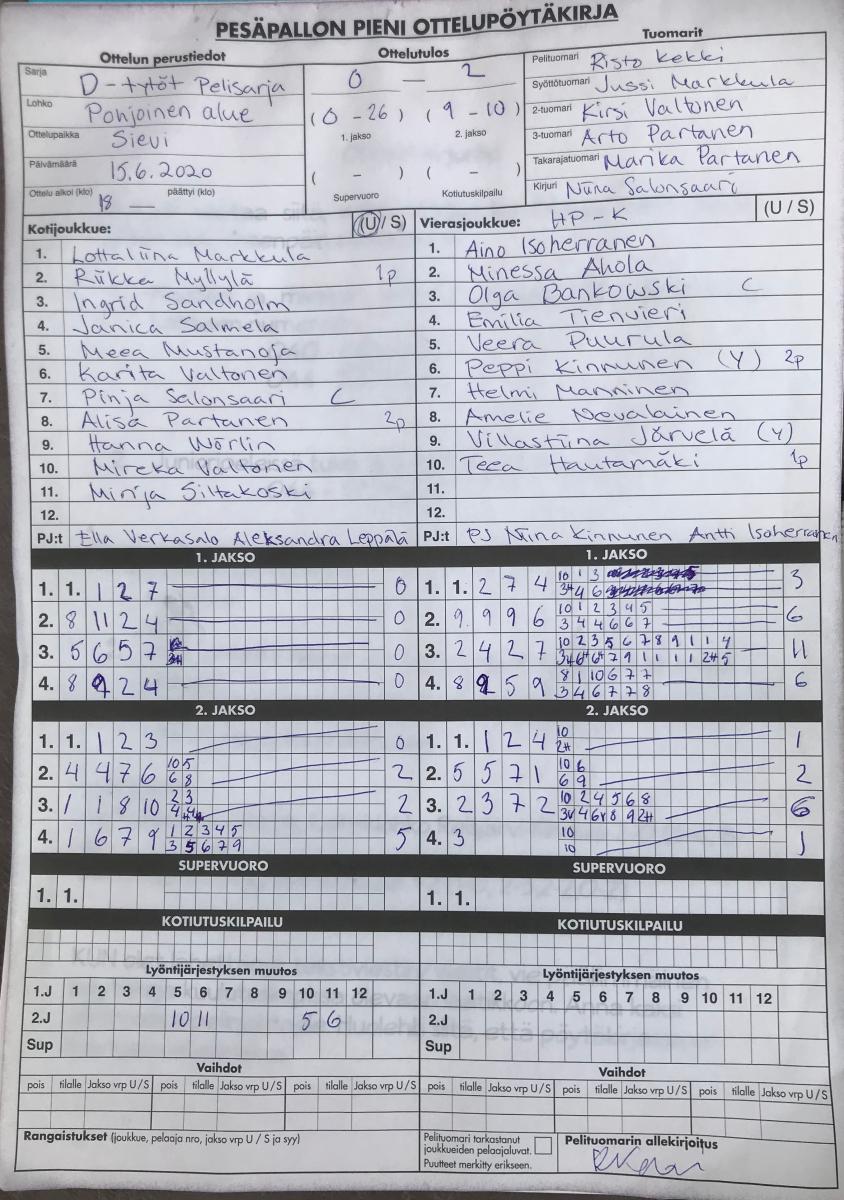 PESÄPALLON PIENI OTTELUPÖYTÄKIRJA
Ottelun perustiedot
Sarja D-tytöt Pelisarja
Lohko Pohjoinen alue
Ottelupaikka Sievi
Päivämäärä 15.6.2020
Ottelu alkoi (klo) 18 — päättyi (klo)
Ottelutulos
0 — 2
(0 - 26) (9 - 10)
1. jakso 2. jakso
( - ) ( - )
Supervuoro Kotiutuskilpailu
Tuomarit
Pelituomari Risto Kekki
Syöttötuomari Jussi Markkula
2-tuomari Kirsi Valtonen
3-tuomari Arto Partanen
Takarajatuomari Marika Partanen
Kirjuri Niina Salonsaari
Kotijoukkue: (U / S)
1. Lottaliina Markkula
2. Riikka Myllylä 1p
3. Ingrid Sandholm
4. Janica Salmela
5. Meea Mustanoja
6. Karita Valtonen
7. Pinja Salonsaari C
8. Alisa Partanen 2p
9. Hanna Wörlin
10. Mireka Valtonen
11. Minja Siltakoski
12.
PJ:t Ella Verkasalo Aleksandra Leppälä
Vierasjoukkue: HP - K (U / S)
1. Aino Isoherranen
2. Minessa Ahola
3. Olga Bankowski C
4. Emilia Tienvieri
5. Veera Puurula
6. Peppi Kinnunen (Y) 2p
7. Helmi Manninen
8. Amelie Nevalainen
9. Villastiina Järvelä (Y)
10. Teea Hautamäki 1p
11.
12.
PJ:t PJ Niina Kinnunen Antti Isoherranen
1. JAKSO
1. 1. 1 2 7 0
2. 8 11 2 4 0
3. 5 6 5 7 0
4. 8 9 2 4 0
2. JAKSO
1. 1. 1 2 3 0
2. 4 4 7 6 10 5 2
6 8
3. 1 1 8 10 2 3 2
4. 1 6 7 9 1 2 3 4 5 5
3 5 6 7 9
SUPERVUORO
1. 1.
KOTIUTUSKILPAILU
1. JAKSO
1. 1. 2 7 4 10 1 3 3
3H 4 6
2. 9 9 9 6 10 1 2 3 4 5 6
3 4 4 6 6 7
3. 2 4 2 7 10 2 3 5 6 7 8 9 1 1 4 11
3H 6H 6H 7 9 1 1 1 1 2H 5
4. 8 9 5 9 8 1 10 6 7 7 6
3 4 6 7 7 8
2. JAKSO
1. 1. 1 2 4 10 1
2H
2. 5 5 7 1 10 6 2
6 9
3. 2 3 7 2 10 2 4 5 6 8 6
3V 4 6V 8 9 2H
4. 3 10 1
10
SUPERVUORO
1. 1.
KOTIUTUSKILPAILU
Lyöntijärjestyksen muutos
1.J 1 2 3 4 5 6 7 8 9 10 11 12
2.J 10 11 5 6
Sup
Lyöntijärjestyksen muutos
1.J 1 2 3 4 5 6 7 8 9 10 11 12
2.J
Sup
Vaihdot
pois tilalle Jakso vrp U / S pois tilalle Jakso vrp U / S pois tilalle Jakso vrp U / S
Vaihdot
pois tilalle Jakso vrp U / S pois tilalle Jakso vrp U / S pois tilalle Jakso vrp U / S
Rangaistukset (joukkue, pelaaja nro, jakso vrp U / S ja syy)
Pelituomari tarkastanut
joukkueiden pelaajaluvat.
Puutteet merkitty erikseen.
Pelituomarin allekirjoitus